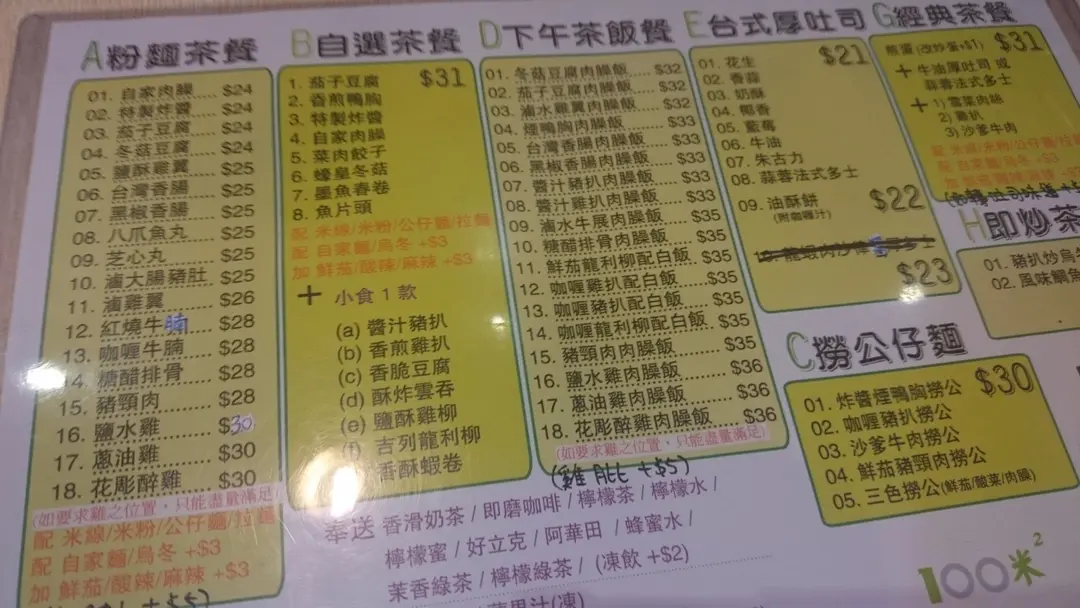 A 粉麵茶餐
01. 自家肉燥 $24
02. 特製炸醬 $24
03. 茄子豆腐 $24
04. 冬菇豆腐 $24
05. 鹽酥雞翼 $25
06. 台灣香腸 $25
07. 黑椒香腸 $25
08. 八爪魚丸 $25
09. 芝心丸 $25
10. 滷大腸豬肚 $25
11. 滷雞翼 $26
12. 紅燒牛腩 $28
13. 咖喱牛腩 $28
14. 糖醋排骨 $28
15. 豬頸肉 $28
16. 鹽水雞 $30
17. 蔥油雞 $30
18. 花彫醉雞 $30
(如要求雞之位置，只能盡量滿足)
配 米線/米粉/公仔麵/拉麵
配 自家麵/烏冬 +$3
加 鮮茄/酸辣/麻辣 +$3
B 自選茶餐
$31
1. 茄子豆腐
2. 香煎鴨胸
3. 特製炸醬
4. 自家肉燥
5. 菜肉餃子
6. 蠔皇冬菇
7. 墨魚春卷
8. 魚片頭
配 米線/米粉/公仔麵/拉麵
配 自家麵/烏冬 +$3
加 鮮茄/酸辣/麻辣 +$3
+ 小食 1 款
(a) 醬汁豬扒
(b) 香煎雞扒
(c) 香脆豆腐
(d) 酥炸雲吞
(e) 鹽酥雞柳
(f) 吉列龍利柳
香酥蝦卷
D 下午茶飯餐
01. 冬菇豆腐肉燥飯 $32
02. 茄子豆腐肉燥飯 $32
03. 滷水雞翼肉燥飯 $32
04. 煙鴨胸肉燥飯 $33
05. 台灣香腸肉燥飯 $33
06. 黑椒香腸肉燥飯 $33
07. 醬汁豬扒肉燥飯 $33
08. 醬汁雞扒肉燥飯 $33
09. 滷水牛展肉燥飯 $35
10. 糖醋排骨肉燥飯 $35
11. 鮮茄龍利柳配白飯 $35
12. 咖喱雞扒配白飯 $35
13. 咖喱豬扒配白飯 $35
14. 咖喱龍利柳配白飯 $35
15. 豬頸肉肉燥飯 $35
16. 鹽水雞肉燥飯 $36
17. 蔥油雞肉燥飯 $36
18. 花彫醉雞肉燥飯 $36
(如要求雞之位置，只能盡量滿足)
(雞 ALL +$5)
奉送 香滑奶茶 / 即磨咖啡 / 檸檬茶 / 檸檬水 /
檸檬蜜 / 好立克 / 阿華田 / 蜂蜜水 /
茉香綠茶 / 檸檬綠茶 / (凍飲 +$2)
蘋果汁(凍)
E 台式厚吐司
$21
01. 花生
02. 香蒜
03. 奶酥
04. 椰香
05. 藍莓
06. 牛油
07. 朱古力
08. 蒜蓉法式多士
09. 油酥餅 $22
(附咖喱汁)
$23
G 經典茶餐
煎蛋 (改炒蛋+$1) $31
+ 牛油厚吐司 或
蒜蓉法式多士
+ 1) 雪菜肉絲
2) 雞扒
3) 沙爹牛肉
配 米線/米粉/公仔麵
配 自家麵/烏冬 +$3
H 即炒茶
01. 豬扒炒烏
02. 風味鯛魚
C 撈公仔麵
$30
01. 炸醬煙鴨胸撈公
02. 咖喱豬扒撈公
03. 沙爹牛肉撈公
04. 鮮茄豬頸肉撈公
05. 三色撈公(鮮茄/酸菜/肉燥)
100米²